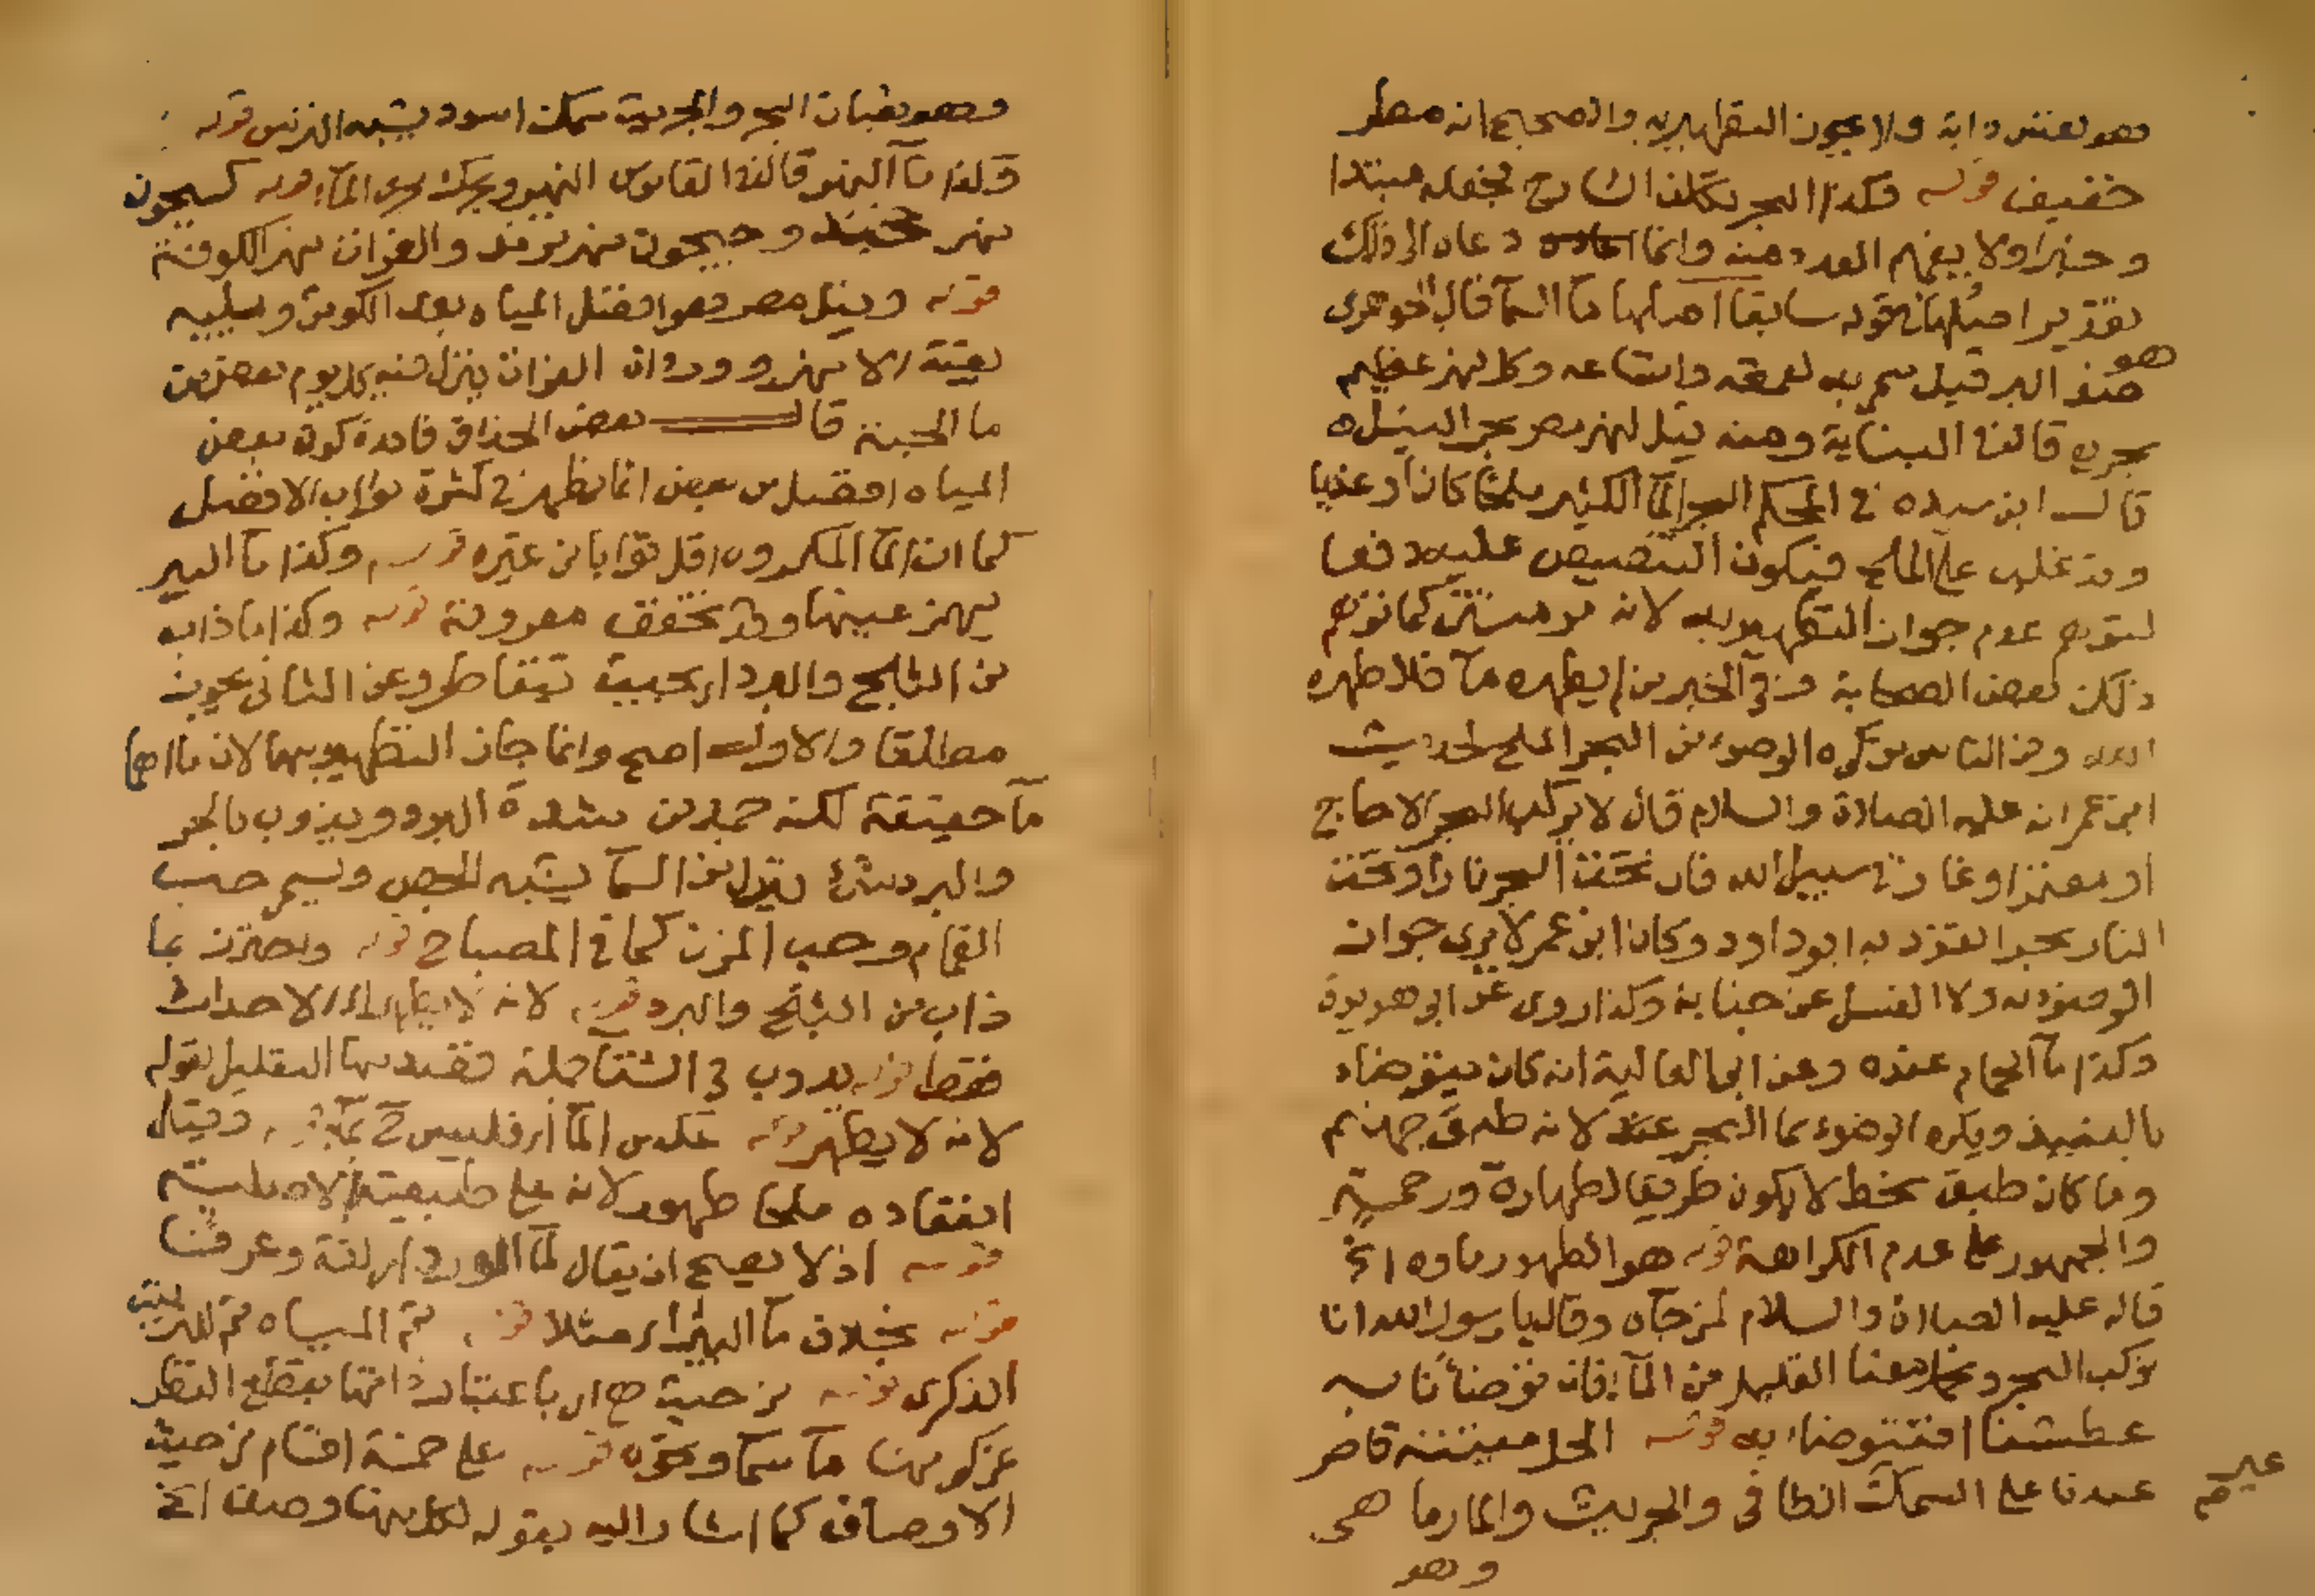 وهو نفس دابة ولا يجوز التطهير به والصحيح انه مطر
خفيف قوله وكذا البحر تكلف الشارح بجعله مبتدا
وخبرا ولا يفهم العدد منه وانما دعاه الى ذلك
تقدير اصلها في قوله سابقا اصلها ما السما قال الجوهرى
هو ضد البر قيل سمى به لعمقه واتساعه وكل نهر عظيم
بحر قال فى البناية ومنه نيل لنهر مصر بحر النيل ه
قال ابن سيده فى المحكم البحر الما الكثير ملحا كان او عذبا
وقد غلب على المالح فيكون التنصيص عليه دفعا
لتوهم عدم جواز التطهير به لانه مر منتن كما توهم
ذلك بعض الصحابة وفى الخبر من لم يطهره ما فلا طهره
الله ومن الناس من كره الوضوء من البحر الملح لحديث
ابن عمر انه عليه الصلاة والسلام قال لا يركب البحر الا حاج
او معتمر او غاز فى سبيل الله فان تحت البحر نارا وتحت
النار بحرا تفرد به ابو داود وكان ابن عمر لا يرى جواز
الوضوء به ولا الغسل عن جنابة وكذا روى عن ابى هريرة
وكذا ما الحمام عنده وعن ابى العالية انه كان يتوضاء
بالنبيذ ويكره الوضوء بما البحر عنه لانه طبق جهنم
وما كان طبق سخط لا يكون طريقا لطهارة ورحمة
والجمهور على عدم الكراهة قوله هو الطهور ماوه الخ
قاله عليه الصلاة والسلام لمن جاه وقال يا رسول الله انا
نركب البحر ونحمل معنا القليل من الما فان توضأنا به
عطشنا افنتوضاء به قوله الحل ميتته قاصر
عندنا على السمك الطافى والجريث والمارما هى
غير
وهو
وهو ثعبان البحر والجريث سمك اسود يشبه الترس قوله
وكذا ما النهر قال فى القاموس النهر ويحرك مجرى الما قوله كسيحون
نهر خجند وجيحون نهر ترمذ والفرات نهر الكوفة
قوله ونيل مصر وهو افضل المياه بعد الكوثر ويليه
بقية الانهر وورد ان الفرات ينزل فيه كل يوم بعض من
ما الجنة قال بعض الحذاق فايدة كون بعض
المياه افضل من بعض انما يظهر فى كثرة ثواب الافضل
كما ان الما المكروه اقل ثوابا من غيره قوله وكذا ما البير
بهمز عينها وقد تخفف معروفة قوله وكذا ما ذاب
من الثلج والبرد اى بحيث يتقاطر وعن الثانى يجوز
مطلقا والاول اصح وانما جاز التطهير بهما لان ما اهما
ما حقيقة لكنه جمد من شدة البرد ويذوب بالحر
والبرد شئ ينزل من السما يشبه الحصى ويسمى حب
الغمام وحب المزن كما فى المصباح قوله وبصرف بما
ذاب من الثلج والبرد قوله لانه لا يطهر اى الاحداث
فقط قوله يذوب فى الشتا جملة قصد بها التعليل لقوله
لانه لا يطهر قوله عكس الما اى فليس ح بما قوله وقبل
انعقاده ملحا طهور لانه على طبيعته الاصلية
قوله اذ لا يصح ان يقال لما الورد اى لغة وعرفا
قوله بخلاف ما البير اى مثلا قوله ثم المياه ثم للترتيب
الذكرى قوله من حيث هى اى باعتبار ذاتها بقطع النظر
عن كونها ما سما ونحوه قوله على خمسة اقسام من حيث
الاوصاف كما اشار اليه بقوله لكل منها وصف الخ